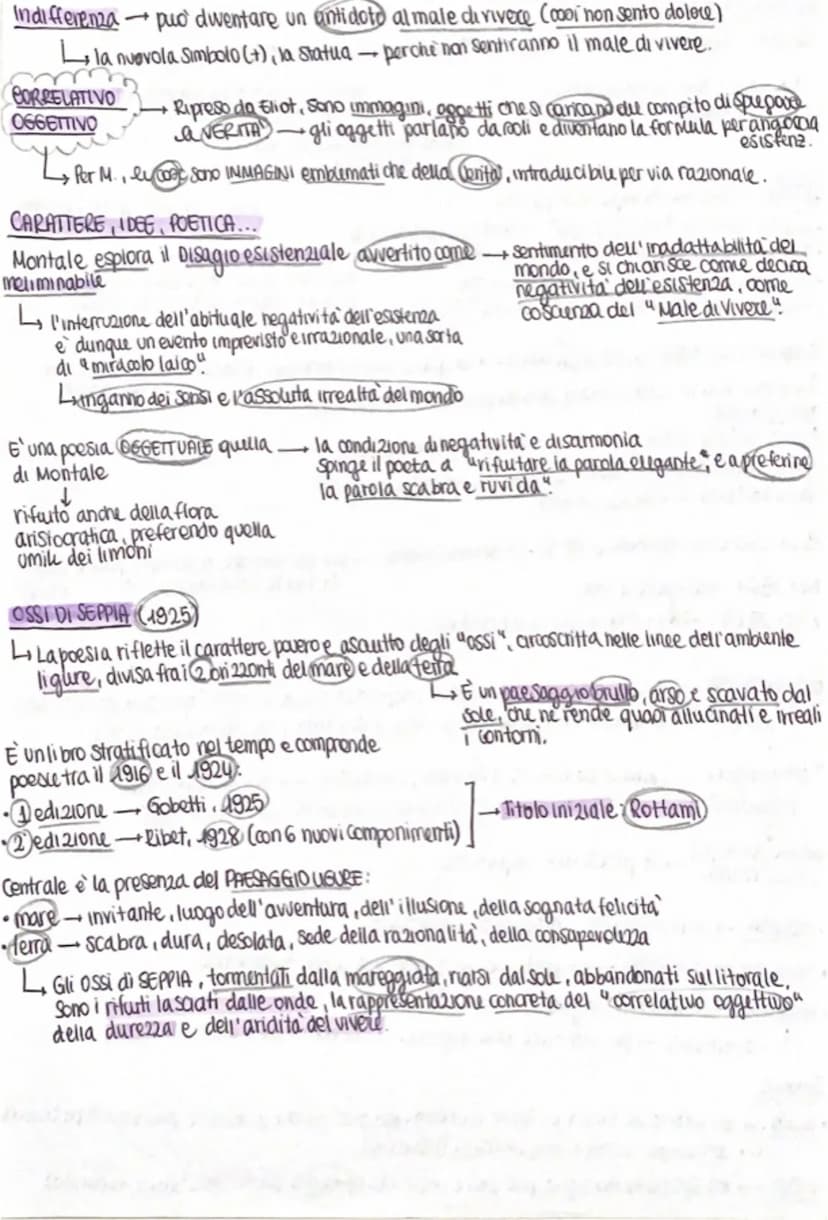 Indifferenza → può diventare un antidoto al male di vivere (così non sento dolore)
↳ la nuvola simbolo (+), la statua → perché non sentiranno il male di vivere.
CORRELATIVO
OGGETTIVO
→ Ripreso da Eliot, sono immagini, oggetti che si caricano del compito di
la VERITÀ → gli oggetti parlano da soli e diventano la formula per angoscia
esistenz.
↳ Per M., le cose sono IMMAGINI emblematiche della verità, intraducibile per via razionale.
CARATTERE, IDEE, POETICA...
Montale esplora il Disagio esistenziale avvertito come
ineliminabile
→ sentimento dell'inadattabilità del
mondo, e si chiarisce come decisa
negatività dell'esistenza, come
coscienza del "Male di Vivere".
↳ l'interruzione dell'abituale negatività dell'esistenza
è dunque un evento imprevisto e irrazionale, una sorta
di "miracolo laico".
↳ inganno dei sensi e l'assoluta irrealtà del mondo
È una poesia OGGETTUALE quella
di Montale
→ la condizione di negatività e disarmonia
spinge il poeta a "rifiutare la parola elegante", e a preferire
la parola scabra e ruvida"
↓
rifiuto anche della flora
aristocratica, preferendo quella
umile dei limoni
OSSI DI SEPPIA (1925)
↳ La poesia riflette il carattere povero e asciutto degli "ossi", circoscritta nelle linee dell'ambiente
ligure, divisa fra i 2 orizzonti del mare e della terra
↳ È un paesaggio brullo, arso e scavato dal
sole, che ne rende quasi allucinati e irreali
i contorni.
È un libro stratificato nel tempo e comprende
poesie tra il 1916 e il 1924:
• 1) edizione → Gobetti, 1925
• 2) edizione → Ribet, 1928 (con 6 nuovi componimenti)
→ Titolo iniziale: Rottami
Centrale è la presenza del PAESAGGIO LIGURE:
• mare → invitante, luogo dell'avventura, dell'illusione, della sognata felicità
• terra → scabra, dura, desolata, sede della razionalità, della consapevolezza
↳ Gli ossi di SEPPIA, tormentati dalla mareggiata, riarsi dal sole, abbandonati sul litorale,
sono i rifiuti lasciati dalle onde, la rappresentazione concreta del "correlativo oggettivo"
della durezza e dell'aridità del vivere.